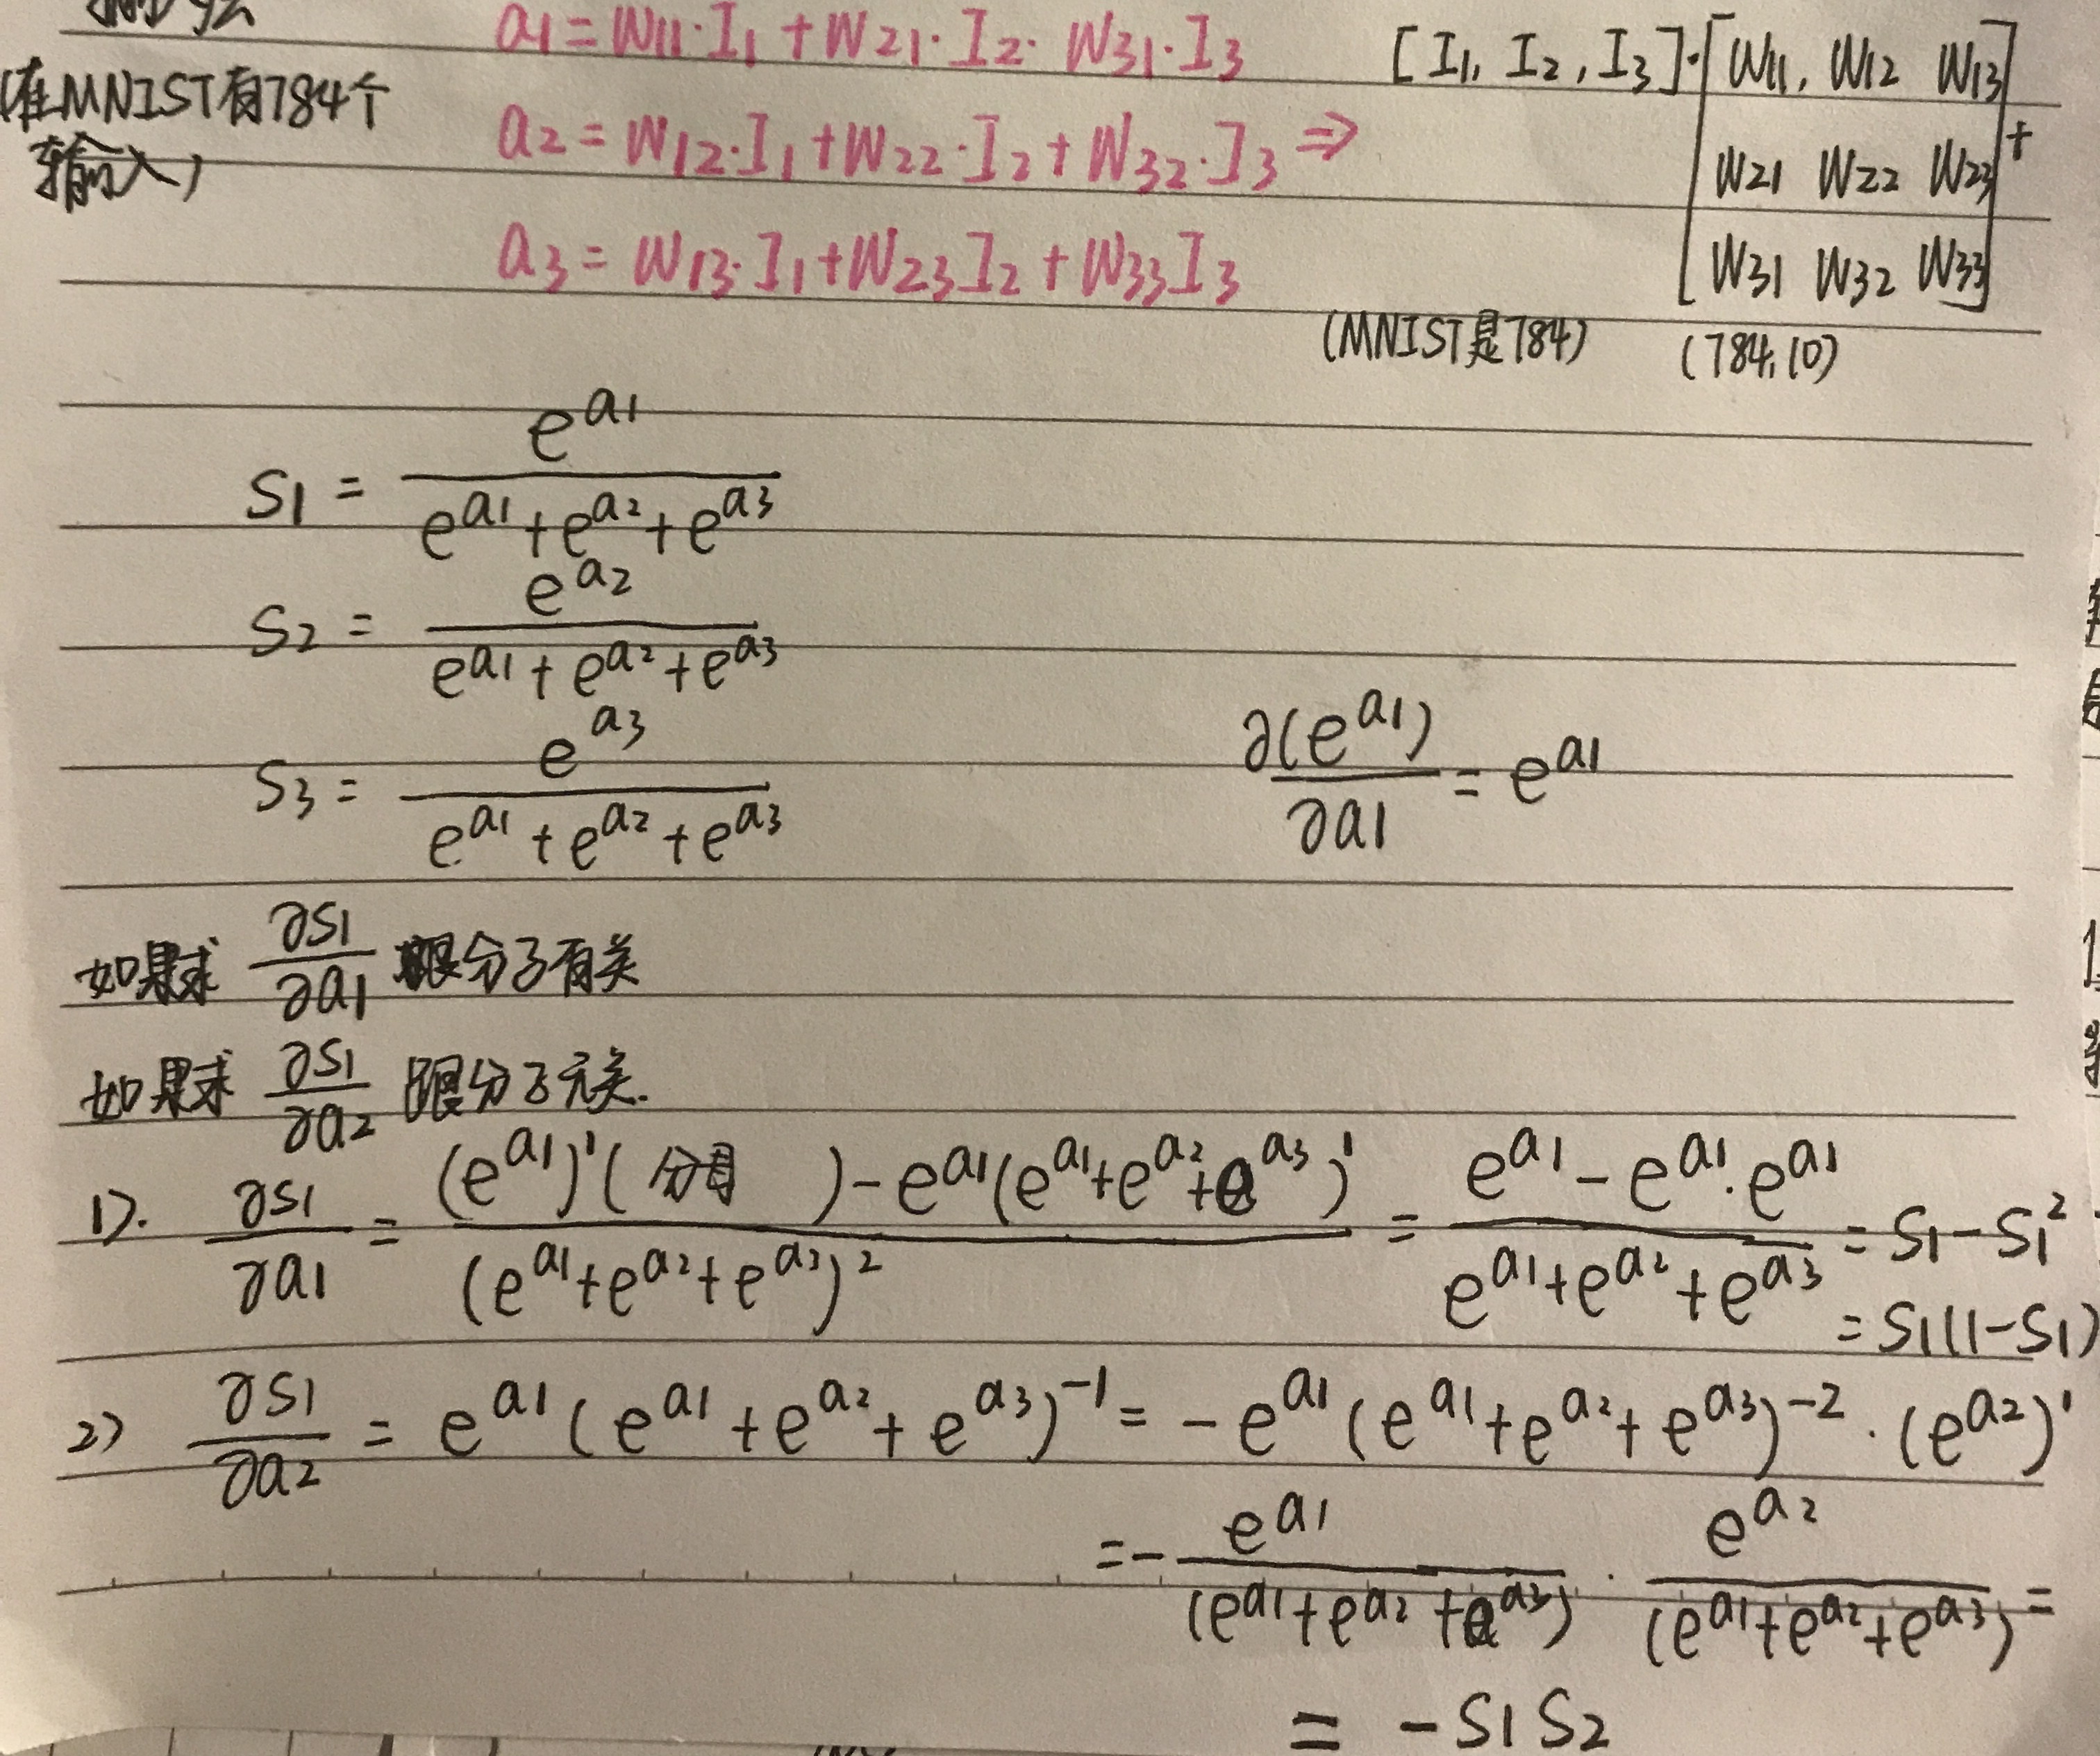 a1 = W11·I1 + W21·I2· W31·I3
[I1, I2, I3]·[W11, W12 W13
(在MNIST有784个
输入)
a2 = W12·I1 + W22·I2 + W32·I3 ⇒
W21 W22 W23 ] +
a3 = W13·I1 + W23 I2 + W33 I3
W31 W32 W33
(MNIST是784) (784,10)
S1 = e^a1 / (e^a1 + e^a2 + e^a3)
S2 = e^a2 / (e^a1 + e^a2 + e^a3)
S3 = e^a3 / (e^a1 + e^a2 + e^a3)
∂(e^a1) / ∂a1 = e^a1
如果求 ∂S1/∂a1 跟分子有关
如果求 ∂S1/∂a2 跟分子无关.
1). ∂S1/∂a1 = ((e^a1)'(分母 ) - e^a1(e^a1 + e^a2 + e^a3)') / (e^a1 + e^a2 + e^a3)^2 = (e^a1 - e^a1·e^a1) / (e^a1 + e^a2 + e^a3) = S1 - S1^2
= S1(1-S1)
2) ∂S1/∂a2 = e^a1 (e^a1 + e^a2 + e^a3)^-1 = - e^a1 (e^a1 + e^a2 + e^a3)^-2 · (e^a2)'
= - e^a1 / (e^a1 + e^a2 + e^a3) · e^a2 / (e^a1 + e^a2 + e^a3) =
= - S1 S2